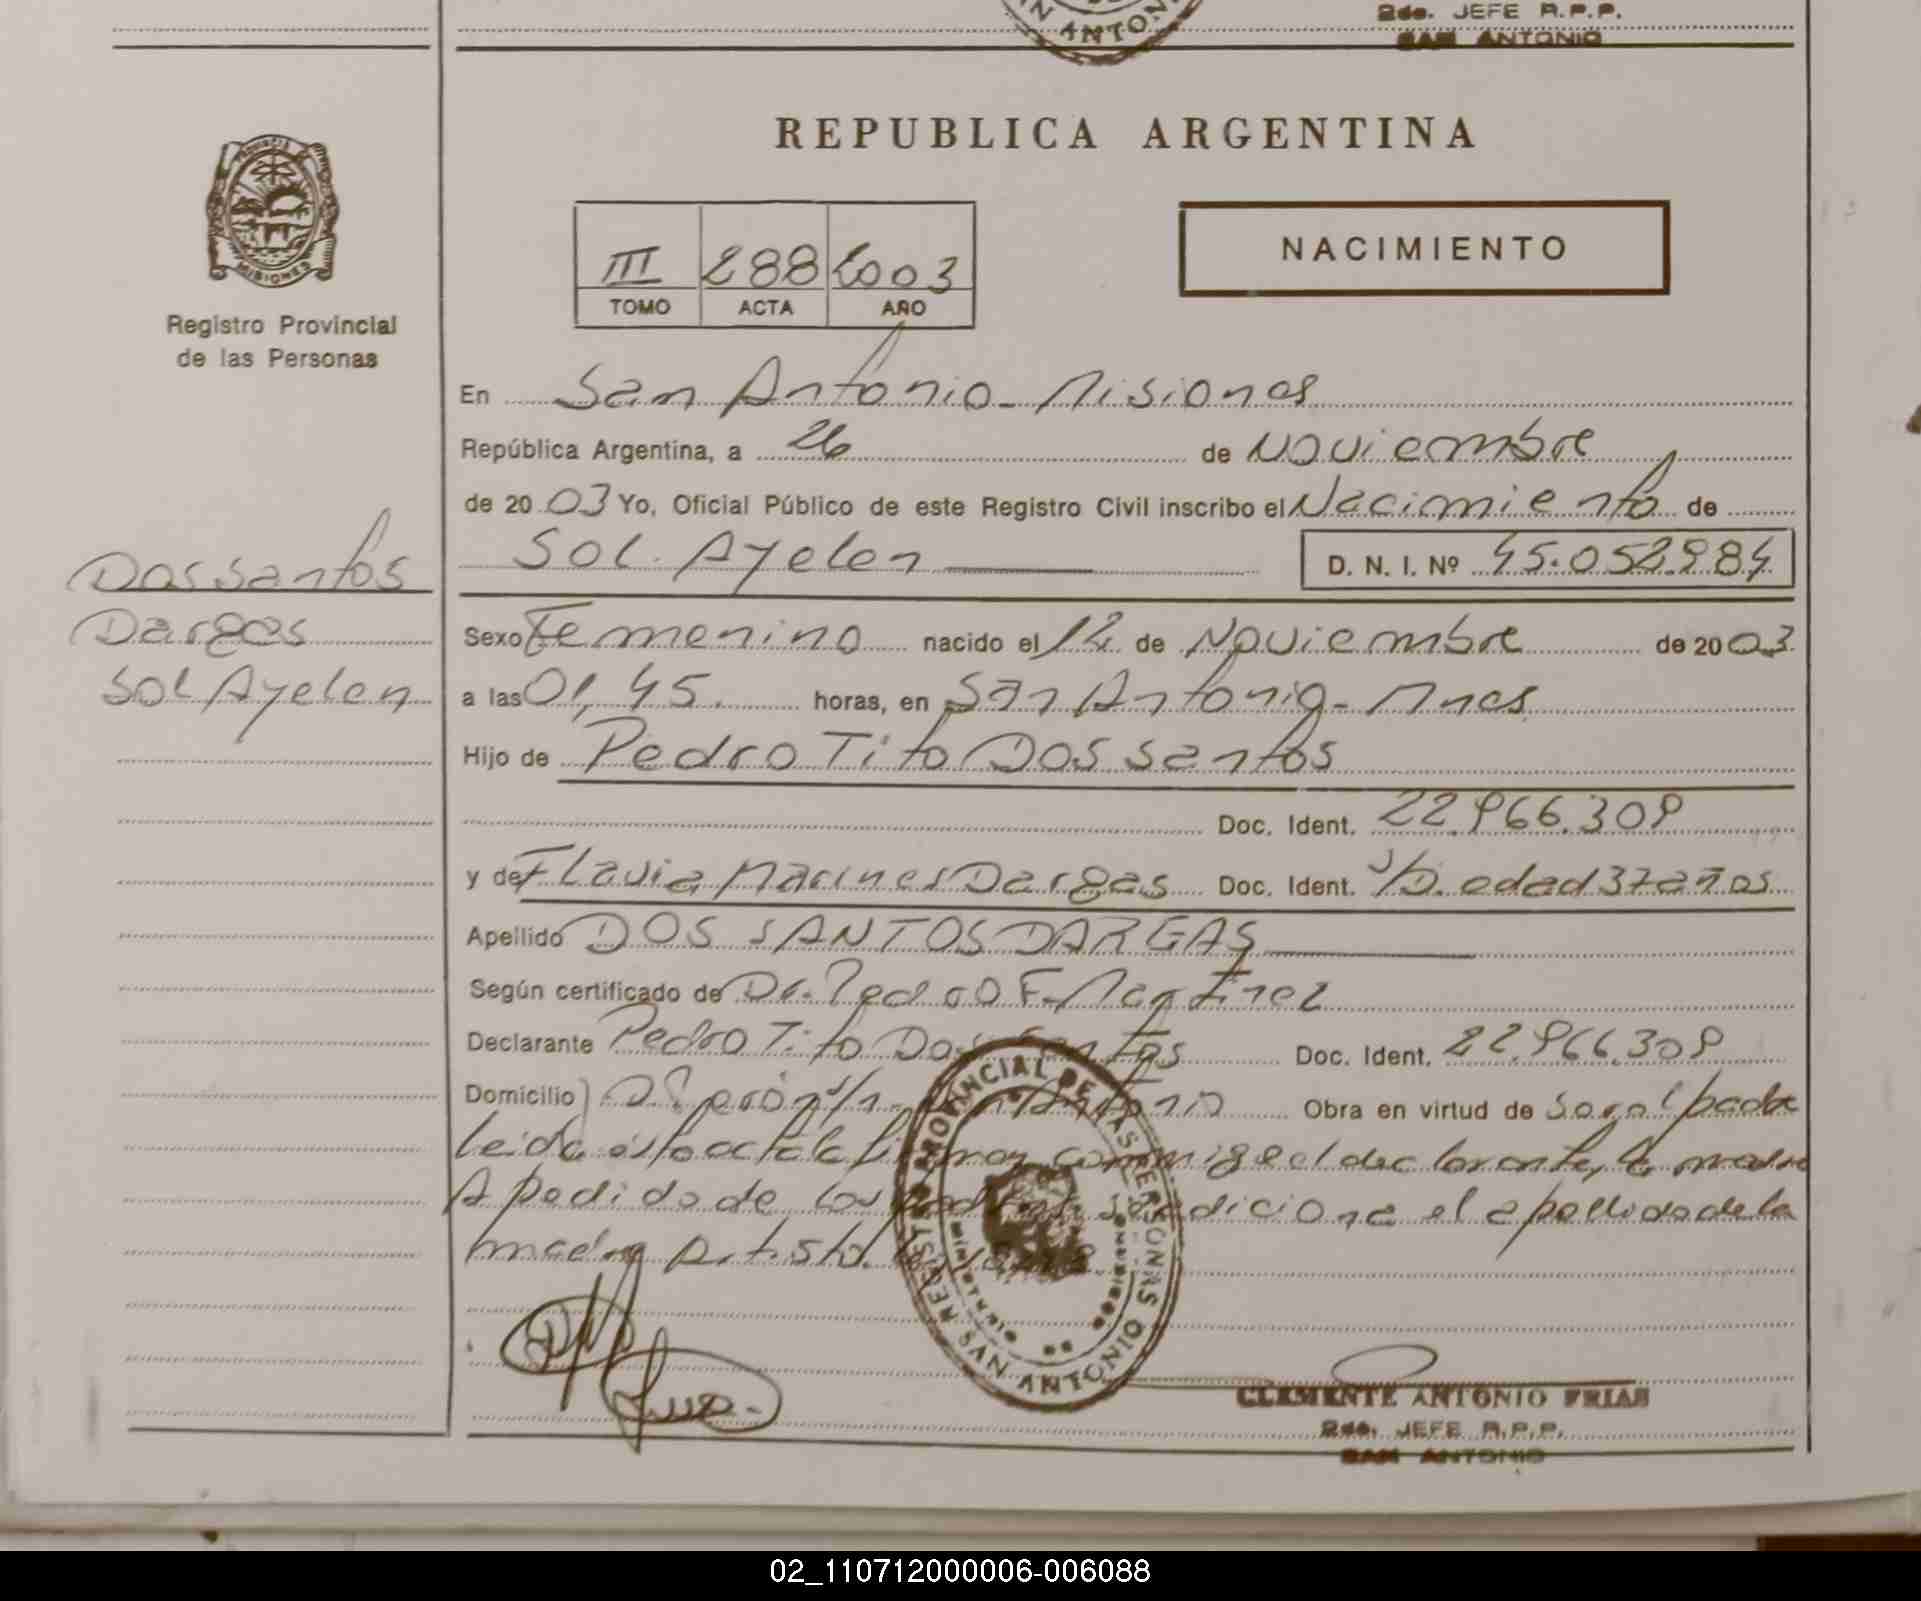 2do. JEFE R.P.P.
SAN ANTONIO
SAN ANTONIO
PROVINCIA DE
MISIONES
Registro Provincial
de las Personas
REPUBLICA ARGENTINA
III 288 2003
TOMO ACTA AÑO
NACIMIENTO
En San Antonio - Misiones
República Argentina, a 26 de Noviembre
de 20 03 Yo, Oficial Público de este Registro Civil inscribo el Nacimiento de
Sol Ayelen D. N. I. Nº
Dos santos
Dargas
Sol Ayelen
Sexo Femenino nacido el 12 de Noviembre de 20 03
a las 01,45 horas, en San Antonio - Mnes
Hijo de Pedro Tito Dos santos
Doc. Ident. 22.966.309
y de Flavia Marines Dargas Doc. Ident. S/D. edad 37 años
Apellido DOS SANTOS DARGAS
Según certificado de Dr. Pedro F. Martinez
Declarante Pedro Tito Dos Santos Doc. Ident. 22.966.309
Domicilio J D Perón s/n. San Antonio Obra en virtud de ser el padre
Leida esta acta la firman conmigo el declarante, la madre
A pedido de los padres se adiciona el apellido de la
madre
REGISTRO PROVINCIAL DE LAS PERSONAS
SAN ANTONIO
MINISTERIO GOBIERNO
CLEMENTE ANTONIO FRIAS
2do. JEFE R.P.P.
SAN ANTONIO
02_110712000006-006088